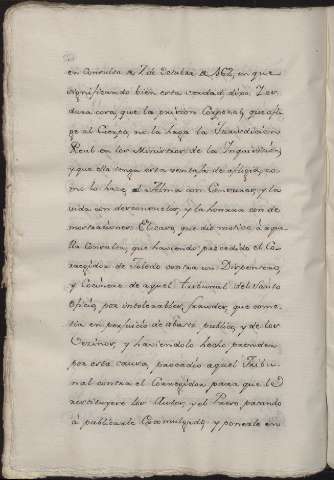 en consulta de 7 de octubre de 1622, en que
significando bien esta verdad, dijo: Ser
dura cosa, que la prision Corporal, que afli-
ge al Cuerpo, no la haga la Jurisdiccion
Real en los Ministros de la Inquisicion,
y que ella tenga esta ventaja de afligir, co-
mo lo hace, al Alma con Censuras, y la
vida con desconsuelos, y la honrra con de-
mostraciones. El caso, que dió motivo á aque-
lla Consulta, que haviendo procedido el Co-
rregidor de Toledo contra un Dispensero,
y Cocinero de aquel tribunal del Santo
Oficio, por intolerables fraudes, que come-
tia en perjuicio del abasto publico, y de los
Vecinos, y haviendolo hecho prender
por esta causa, procedio aquel Tribu-
nal contra el Corregidor para que le
restituyese los Autos, y el Preso, pasando
á publicarle Excomulgado, y ponerle en